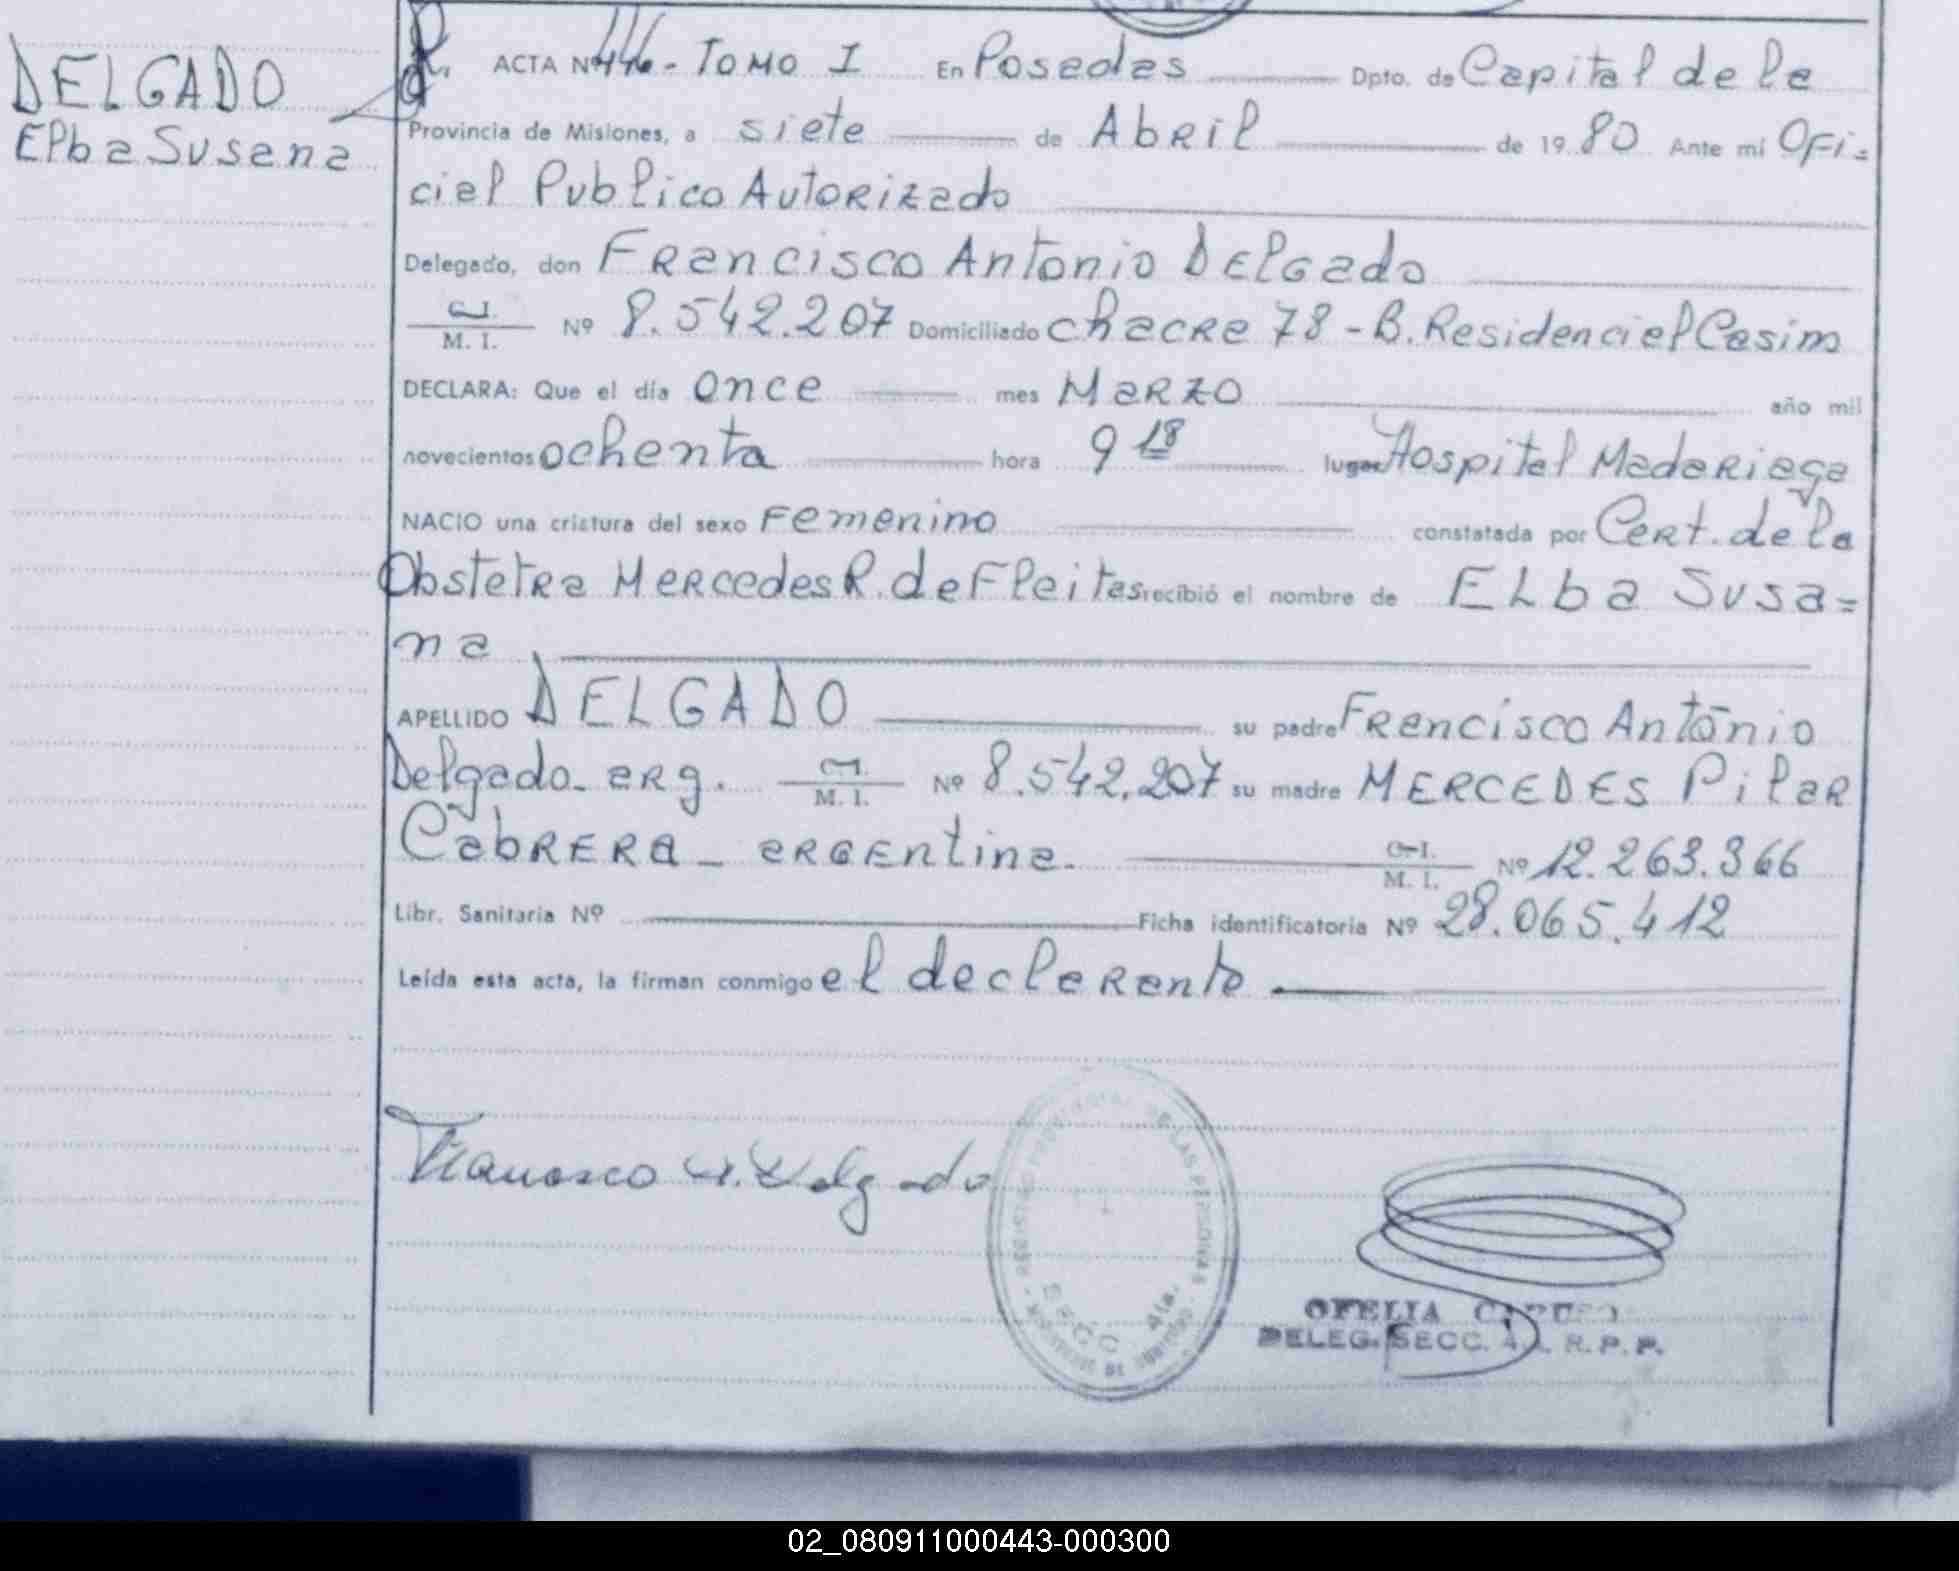 DELGADO
Elba Susana
ACTA Nº 446 - TOMO I En Posadas Dpto. de Capital de la
Provincia de Misiones, a siete de Abril de 1980 Ante mi Ofi=
cial Publico Autorizado
Delegado, don Francisco Antonio Delgado
C.I.
M. I. Nº 8.542.207 Domiciliado chacra 78 - B. Residencial Casim
DECLARA: Que el día once mes Marzo año mil
novecientos ochenta hora 9 18 lugar Hospital Madariaga
NACIO una criatura del sexo Femenino constatada por Cert. de la
Obstetra Mercedes R. de Fleitas recibió el nombre de ELba Susa=
na
APELLIDO DELGADO su padre Francisco Antonio
Delgado - arg. C.I.
M. I. Nº 8.542.207 su madre MERCEDES Pilar
Cabrera - argentina. C.I.
M. I. Nº 12.263.366
Libr. Sanitaria Nº Ficha identificatoria Nº 28.065.412
Leída esta acta, la firman conmigo el declarante
Francisco A. Delgado
REGISTRO PROVINCIAL DE LAS PERSONAS
SECC. 4ta.
OFELIA CARUSO
DELEG. SECC. 4a. R.P.P.
02_080911000443-000300